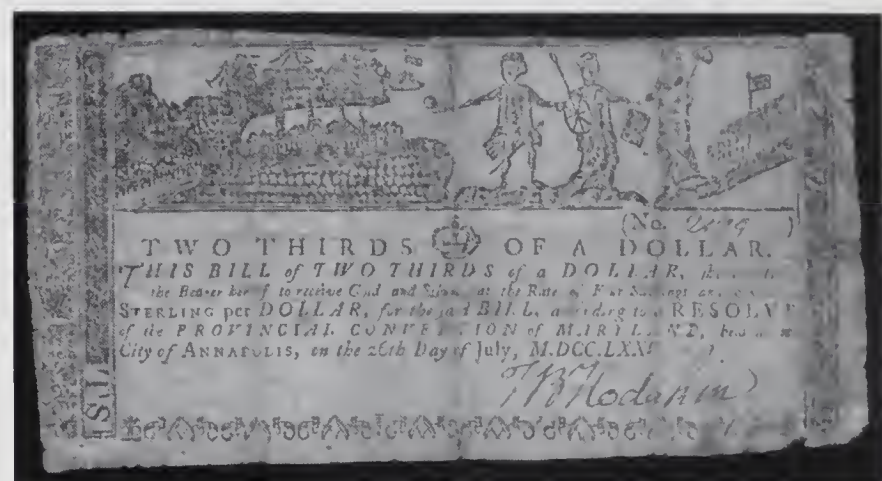 (No. )
TWO THIRDS OF A DOLLAR.
THIS BILL of TWO THIRDS of a DOLLAR,
the Bearer hereof to receive Gold and Silver, at the Rate of Four Shillings
STERLING per DOLLAR, for the said BILL, according to a RESOLVE
of the PROVINCIAL CONVENTION of MARYLAND,
City of ANNAPOLIS, on the 26th Day of July, M.DCC.LXX